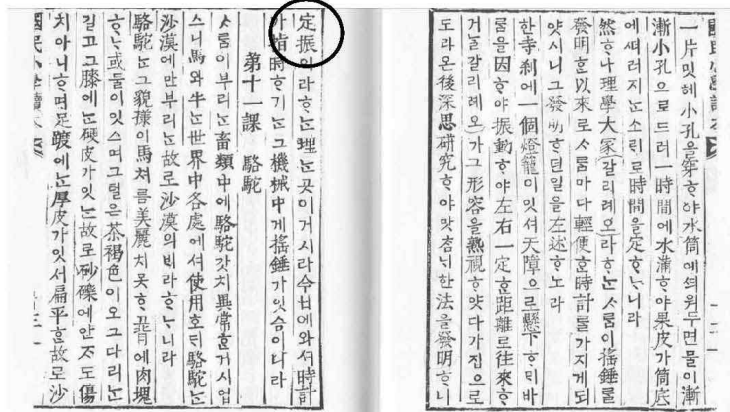 國民小學讀本
一片밋헤小孔을穿ᄒᆞ야水筒에씌워두면물이漸
漸小孔으로드러一時間에水滿ᄒᆞ야果皮가筒底
에ᄯᅥ러지ᄂᆞᆫ소ᄅᆡ로時間을定ᄒᆞᄂᆞ니라
然ᄒᆞ나理學大家갈리레오라ᄒᆞᄂᆞᆫ사ᄅᆞᆷ이搖錘ᄅᆞᆯ
發明ᄒᆞᆫ以來로사ᄅᆞᆷ마다輕便ᄒᆞᆫ時計ᄅᆞᆯ가지게되
얏시니그發明ᄒᆞ던일을左述ᄒᆞ노라
한寺刹에一個燈籠이잇셔天障으로懸下ᄒᆞᄃᆡ바
ᄅᆞᆷ을因ᄒᆞ야振動ᄒᆞ야左右一定ᄒᆞᆫ距離로往來ᄒᆞ
거ᄂᆞᆯ갈리레오가그形容을熟視ᄒᆞ얏다가집으로
도라온後深思硏究ᄒᆞ야맛ᄎᆞᆷᄂᆡ한法을發明ᄒᆞ니
定振이라ᄒᆞᄂᆞᆫ理ᄂᆞᆫ곳이거시라今日에와셔時計
가指時ᄒᆞ기ᄂᆞᆫ그機械中게搖錘가잇슴이니라
第十一課 駱駝
사ᄅᆞᆷ이부리ᄂᆞᆫ畜類中에駱駝갓치異常ᄒᆞᆫ거시업
스니馬와牛ᄂᆞᆫ世界中各處에셔使用호ᄃᆡ駱駝ᄂᆞᆫ
沙漠에만부리ᄂᆞᆫ故로沙漠의ᄇᆡ라ᄒᆞᄂᆞ니라
駱駝ᄂᆞᆫ그貌樣이馬쳐름美麗치못ᄒᆞ고背에肉塊
ᄒᆞᄂᆞ或둘이잇스며그털은茶褐色이오그다리ᄂᆞᆫ
길고그膝에ᄂᆞᆫ硬皮가잇ᄂᆞᆫ故로砂礫에안ᄌᆞ도傷
치아니ᄒᆞ며足蹠에ᄂᆞᆫ厚皮가잇서扁平ᄒᆞᆫ故로沙
國民小學讀本